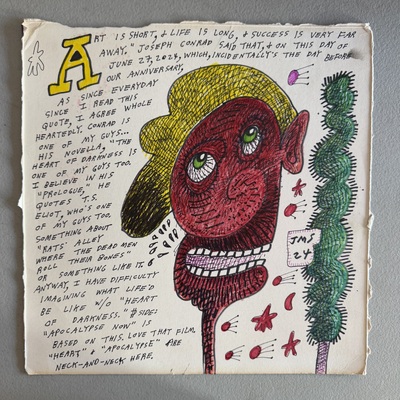 ART IS SHORT, & LIFE IS LONG, & SUCCESS IS VERY FAR
AWAY." JOSEPH CONRAD SAID THAT, & ON THIS DAY OF
JUNE 27, 2024, WHICH, INCIDENTALLY'S THE DAY BEFORE
OUR ANNIVERSARY,
AS SINCE EVERYDAY
SINCE I READ THIS
QUOTE, I AGREE WHOLE
HEARTEDLY. CONRAD IS
ONE OF MY GUYS...
HIS NOVELLA, "THE
HEART OF DARKNESS IS
ONE OF MY GUYS TOO.
I BELIEVE IN HIS
"PROLOGUE," HE
QUOTES T.S.
ELIOT, WHO'S ONE
OF MY GUYS TOO.
SOMETHING ABOUT
"RATS' ALLEY
WHERE THE DEAD MEN
ROLL THEIR BONES"
OR SOMETHING LIKE IT.
ANYWAY, I HAVE DIFFICULTY
IMAGINING WHAT LIFE'D
BE LIKE W/O "HEART
OF DARKNESS." BSIDE:
"APOCALYPSE NOW" IS
BASED ON THIS. LOVE THAT FILM.
"HEART" & "APOCALYPSE" ARE
NECK-AND-NECK HERE.
JMS
24